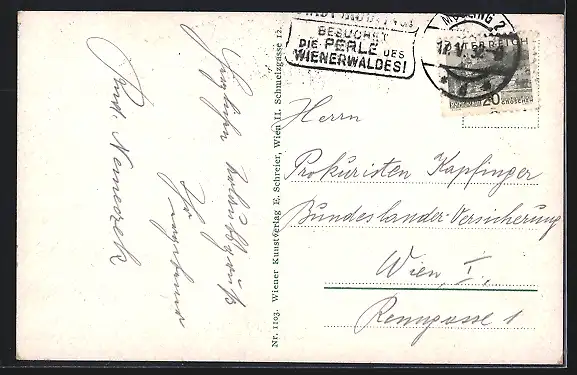 BESUCHET
DIE PERLE DES
WIENERWALDES!
MÖDLING 2
ÖSTERREICH
20 GROSCHEN
Herrn
Prokuristen Kapfinger
Bundesländer-Versicherung
Wien, I.,
Renngasse 1
Nr. 1103. Wiener Kunstverlag E. Schreier, Wien II. Schmelzgasse 12.
Ihr ergebener
Rud. Nemeczek